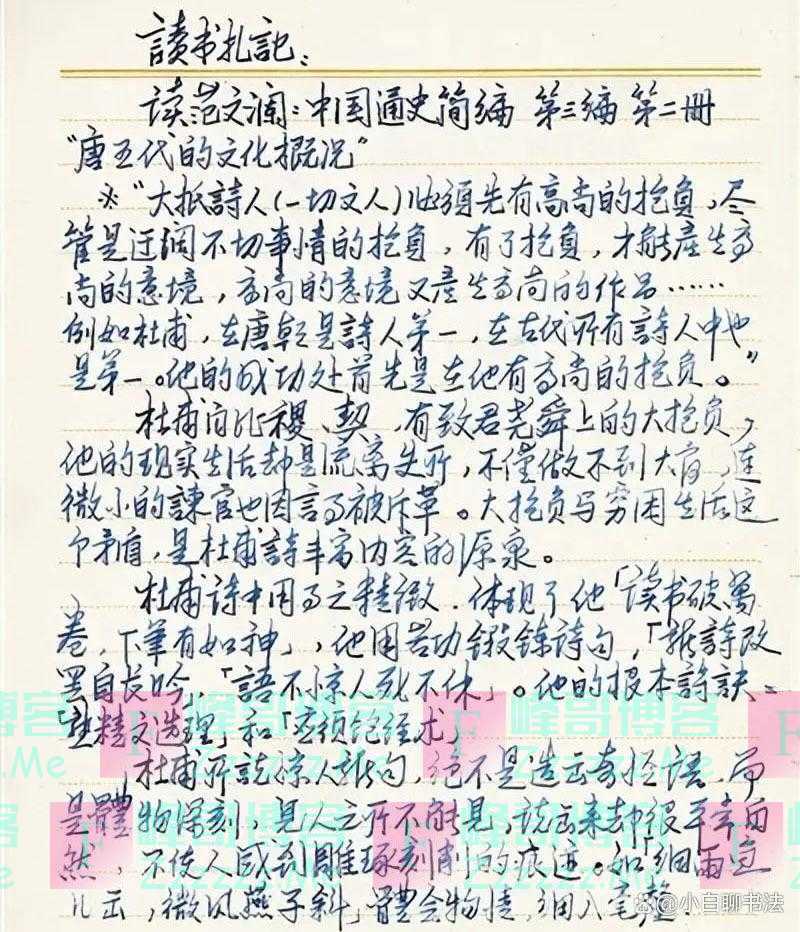 讀书扎記：
读范文澜：中国通史简编 第三编 第二册
“唐五代的文化概况”
※“大抵詩人（一切文人）必須先有高尚的抱負，尽
管是迂阔不切事情的抱負，有了抱負，才能產生高
尚的意境，高尚的意境又產生高尚的作品……
例如杜甫，在唐朝是詩人第一，在古代所有詩人中也
是第一。他的成功处首先是在他有高尚的抱负。”
杜甫自比稷、契，有致君尧舜上的大抱负，
他的现实生活却是流离失所，不僅做不到大官，连
微小的諫官也因言事被斥革。大抱负与穷困生活这
个矛盾，是杜甫詩丰富内容的源泉。
杜甫诗中用事之精微．体现了他「读书破萬
卷，下筆有如神」，他用苦功鍛鍊诗句，「新詩改
罢自长吟」，「語不惊人死不休」。他的根本詩訣：
精文选理」和「须饱经术」
杜甫所說惊人新句，绝不是造出奇怪語，而
是體物深刻，見人之所不能見，说出来却很平常自
然，不使人感到雕琢刻削的痕迹。如「细雨鱼
儿出，微风燕子斜」體会物情，细入毫釐．
峰哥博客
Zzzzz.Me
小白聊书法